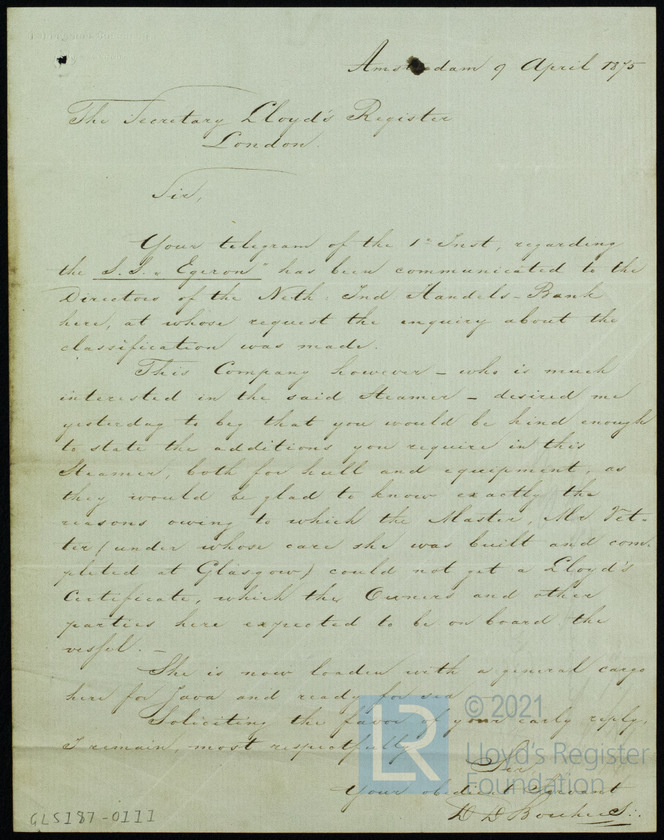 Amsterdam 9 April 1875
The Secretary Lloyd's Register
London.
Sir,
Your telegram of the 1st Inst, regarding
the S.S. "Egeron" has been communicated to the
Directors of the Neth: Ind Handels-Bank
here, at whose request the inquiry about the
classification was made.
This Company however – who is much
interested in the said Steamer – desired me
yesterday to beg that you would be kind enough
to state the additions you require in this
Steamer, both for hull and equipment, as
they would be glad to know exactly the
reasons owing to which the Master, Mr Vet-
ter (under whose care she was built and com-
pleted at Glasgow) could not get a Lloyd's
Certificate, which the Owners and other
parties here expected to be on board the
vessel. –
She is now loaden with a general cargo
here for Java and ready for sea
Soliciting the favor of your early reply,
I remain, most respectfully
Sir,
Your obedient Servant
D D
GLS187-0111
© 2021
LR
Lloyd's Register
Foundation